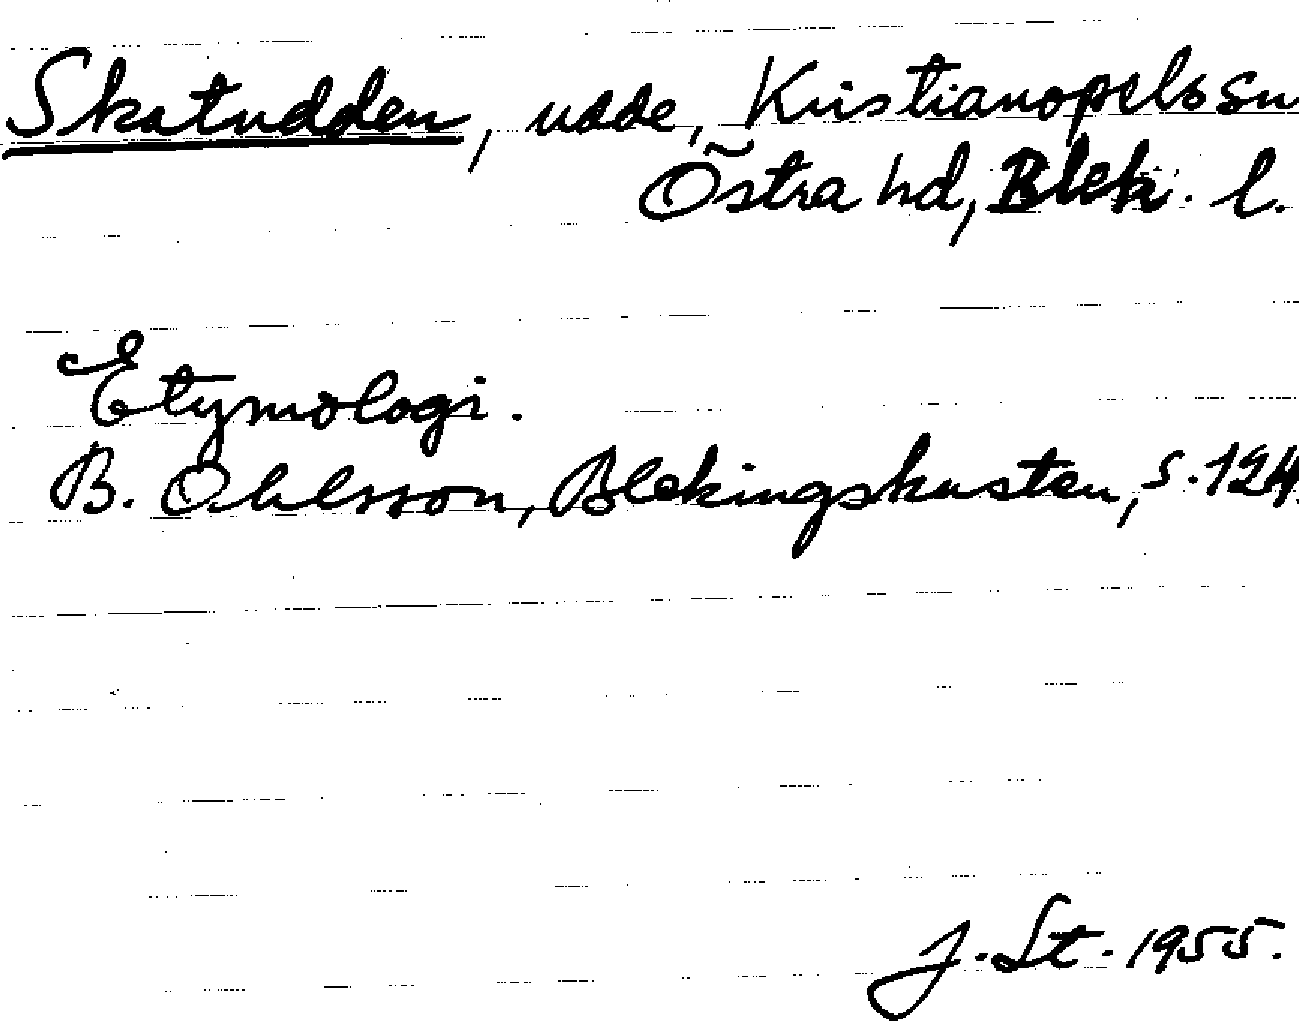 Skatudden, udde, Kristianopels sn
Östra hd, Blek. l.
Etymologi.
B. Ohlsson, Blekingskusten, s. 124.
J. St. 1955.